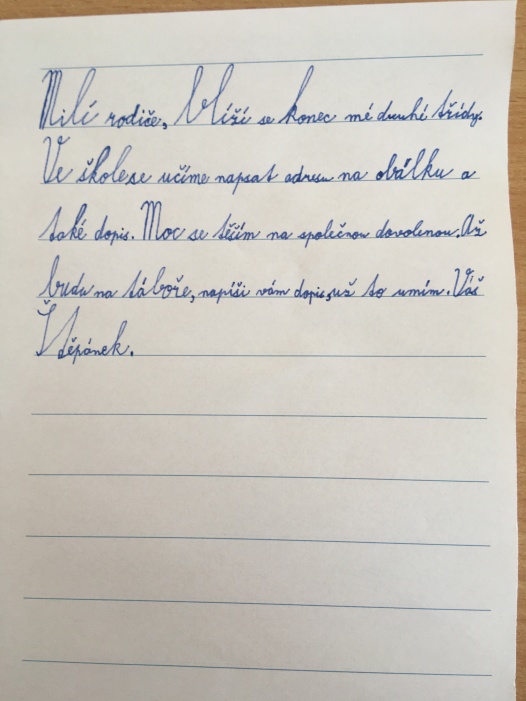 Milí rodiče, blíží se konec mé druhé třídy.
Ve škole se učíme napsat adresu na obálku a
také dopis. Moc se těším na společnou dovolenou. Až
budu na táboře, napíši vám dopis, už to umím. Váš
Štěpánek.